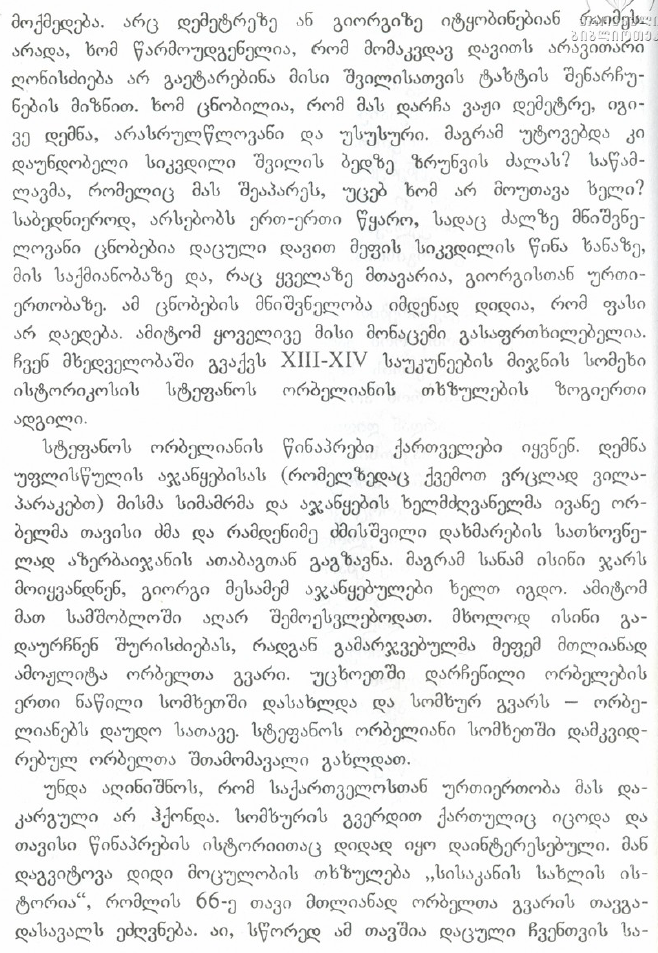 მოქმედება. არც დემეტრეზე ან გიორგიზე იტყობინებიან რაიმეს.
არადა, ხომ წარმოუდგენელია, რომ მომაკვდავ დავითს არავითარი
ღონისძიება არ გაეტარებინა მისი შვილისათვის ტახტის შენარჩუ-
ნების მიზნით. ხომ ცნობილია, რომ მას დარჩა ვაჟი დემეტრე, იგი-
ვე დემნა, არასრულწლოვანი და უსუსური. მაგრამ უტოვებდა კი
დაუნდობელი სიკვდილი შვილის ბედზე ზრუნვის ძალას? საწამ-
ლავმა, რომელიც მას შეაპარეს, უცებ ხომ არ მოუთავა ხელი?
საბედნიეროდ, არსებობს ერთ-ერთი წყარო, სადაც ძალზე მნიშვნე-
ლოვანი ცნობებია დაცული დავით მეფის სიკვდილის წინა ხანაზე,
მის საქმიანობაზე და, რაც ყველაზე მთავარია, გიორგისთან ურთი-
ერთობაზე. ამ ცნობების მნიშვნელობა იმდენად დიდია, რომ ფასი
არ დაედება. ამიტომ ყოველივე მისი მონაცემი გასაფრთხილებელია.
ჩვენ მხედველობაში გვაქვს XIII-XIV საუკუნეების მიჯნის სომეხი
ისტორიკოსის სტეფანოს ორბელიანის თხზულების ზოგიერთი
ადგილი.
სტეფანოს ორბელიანის წინაპრები ქართველები იყვნენ. დემნა
უფლისწულის აჯანყებისას (რომელზედაც ქვემოთ ვრცლად ვილა-
პარაკებთ) მისმა სიმამრმა და აჯანყების ხელმძღვანელმა ივანე ორ-
ბელმა თავისი ძმა და რამდენიმე ძმისშვილი დახმარების სათხოვნე-
ლად აზერბაიჯანის ათაბაგთან გაგზავნა. მაგრამ სანამ ისინი ჯარს
მოიყვანდნენ, გიორგი მესამემ აჯანყებულები ხელთ იგდო. ამიტომ
მათ სამშობლოში აღარ შემოესვლებოდათ. მხოლოდ ისინი გა-
დაურჩნენ შურისძიებას, რადგან გამარჯვებულმა მეფემ მთლიანად
ამოჟლიტა ორბელთა გვარი. უცხოეთში დარჩენილი ორბელების
ერთი ნაწილი სომხეთში დასახლდა და სომხურ გვარს – ორბე-
ლიანებს დაუდო სათავე. სტეფანოს ორბელიანი სომხეთში დამკვიდ-
რებულ ორბელთა შთამომავალი გახლდათ.
უნდა აღინიშნოს, რომ საქართველოსთან ურთიერთობა მას და-
კარგული არ ჰქონდა. სომხურის გვერდით ქართულიც იცოდა და
თავისი წინაპრების ისტორიითაც დიდად იყო დაინტერესებული. მან
დაგვიტოვა დიდი მოცულობის თხზულება „სისაკანის სახლის ის-
ტორია“, რომლის 66-ე თავი მთლიანად ორბელთა გვარის თავგა-
დასავალს ეძღვნება. აი, სწორედ ამ თავშია დაცული ჩვენთვის სა-